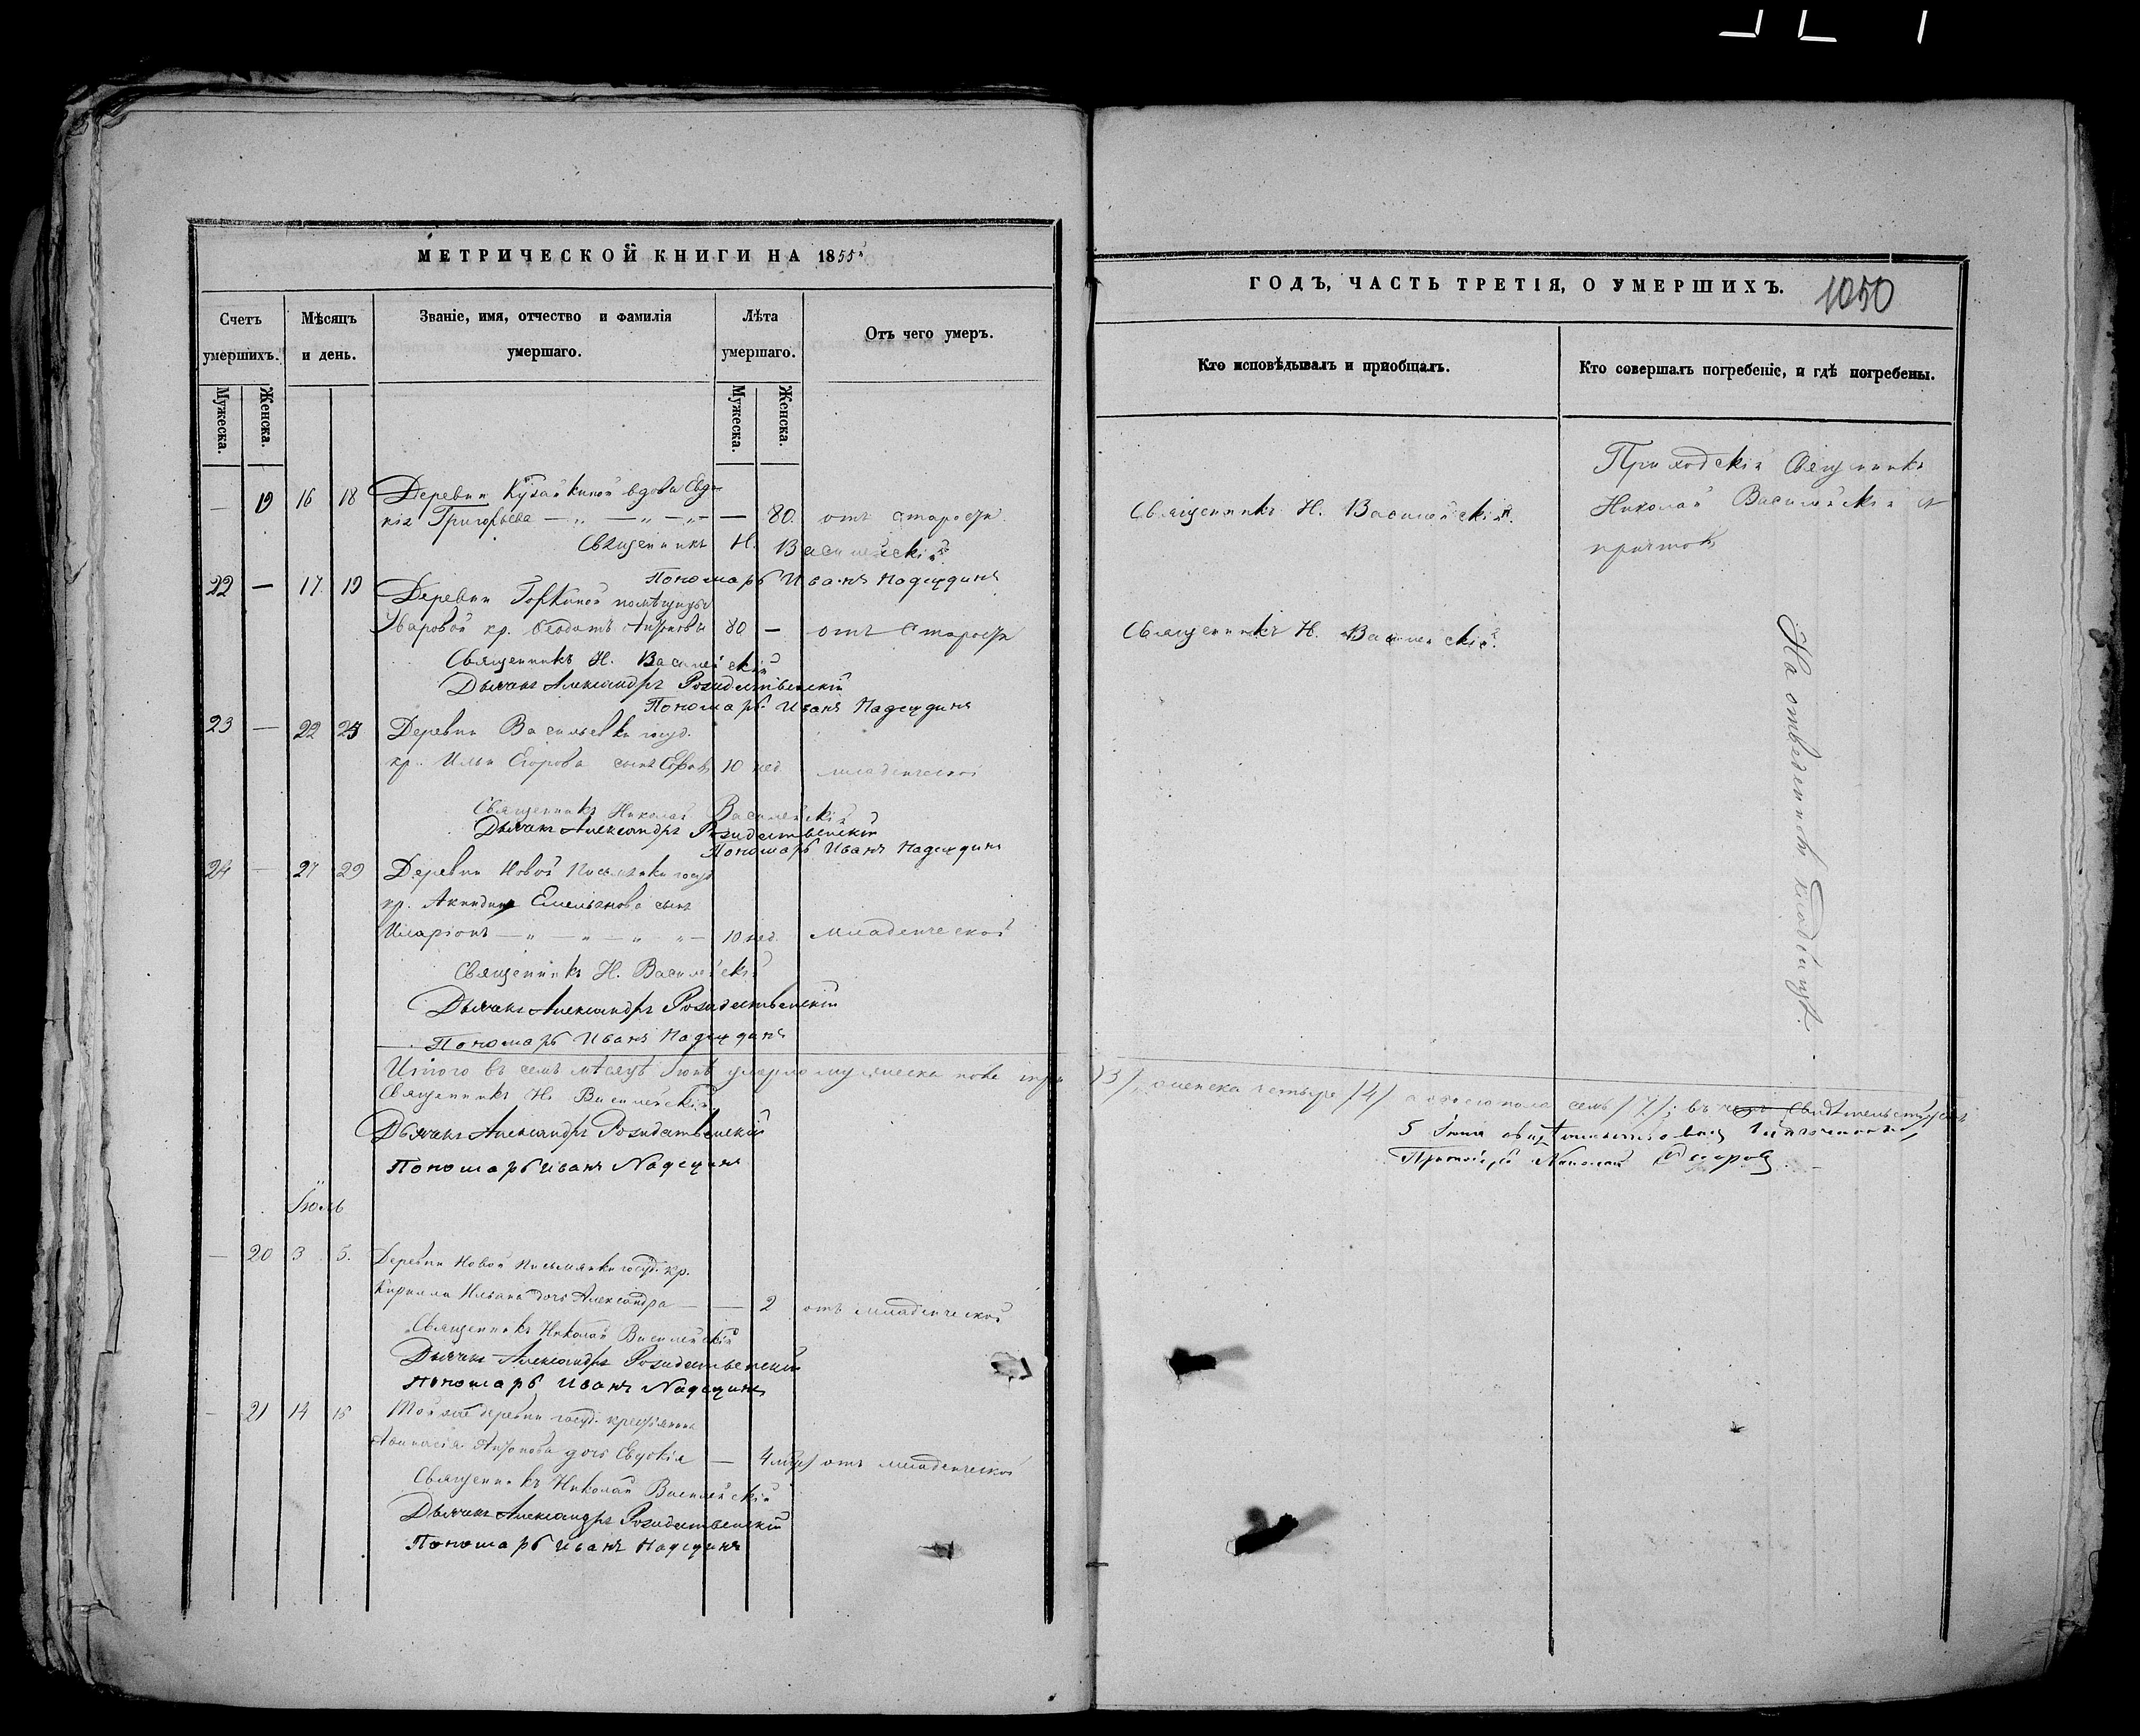 МЕТРИЧЕСКОЙ КНИГИ НА 1855й
Счетъ умершихъ.
Мѣсяцъ и день.
Званіе, имя, отчество и фамилія умершаго.
Лѣта умершаго.
Отъ чего умеръ.
Мужеска.
Женска.
Мужеска.
Женска.
— 19 16 18 Деревни вдова Евдо-
кія Григорьева — „ — „ — „ — — 80. отъ старости.
Священникъ Н. Василейскій
Пономарь Иванъ Надеждинъ
22 — 17 19 Деревни помѣщицы
Уваровой кр. Ѳеодотъ Антоновъ 80 — отъ старости
Священникъ Н. Василейскій
Дьячекъ Александръ Рождественскій
Пономарь Иванъ Надеждинъ
23 — 22 23 Деревни Васильевки госуд.
кр. Ильи Егорова сынъ 10 нед. младенческой
Священникъ Николай Василейскій
Дьячекъ Александръ Рождественскій
Пономарь Иванъ Надеждинъ
24 — 27 29 Деревни Новой Письмянки госуд.
кр. Акиндина Емельянова сынъ
Иларіонъ — „ — „ — „ — „ — 10 нед. младенческой
Священникъ Н. Василейскій
Дьячекъ Александръ Рождественскій
Пономарь Иванъ Надеждинъ
Итого въ семъ мѣсяцѣ Іюнѣ умерло мужеска пола три
Священникъ Н. Василейскій
Дьячекъ Александръ Рождественскій
Пономарь Иванъ Надеждинъ
Іюль
— 20 3 5. Деревни Новой Письмянки госуд. кр.
Кирилла Ильина дочь Александра — — 2 отъ младенческой
Священникъ Николай Василейскій
Дьячекъ Александръ Рождественскій
Пономарь Иванъ Надеждинъ
— 21 14 15 Той же деревни госуд. крестьянина
Аѳанасія Антонова дочь Евдокія — 4 отъ младенческой
Священникъ Николай Василейскій
Дьячекъ Александръ Рождественскій
Пономарь Иванъ Надеждинъ
ГОДЪ, ЧАСТЬ ТРЕТІЯ, О УМЕРШИХЪ.
1050
Кто исповѣдывалъ и пріобщалъ.
Кто совершалъ погребеніе, и гдѣ погребены.
Священникъ Н. Василейскій.
Приходскій Священникъ
Николай Василейскій съ
причтомъ
Священникъ Н. Василейскій.
На отведенномъ кладбищѣ.
/3/, женска четыре /4/ а обоего пола семь /7/; въ чемъ свидѣтельствуемъ
5 Іюля
Николай